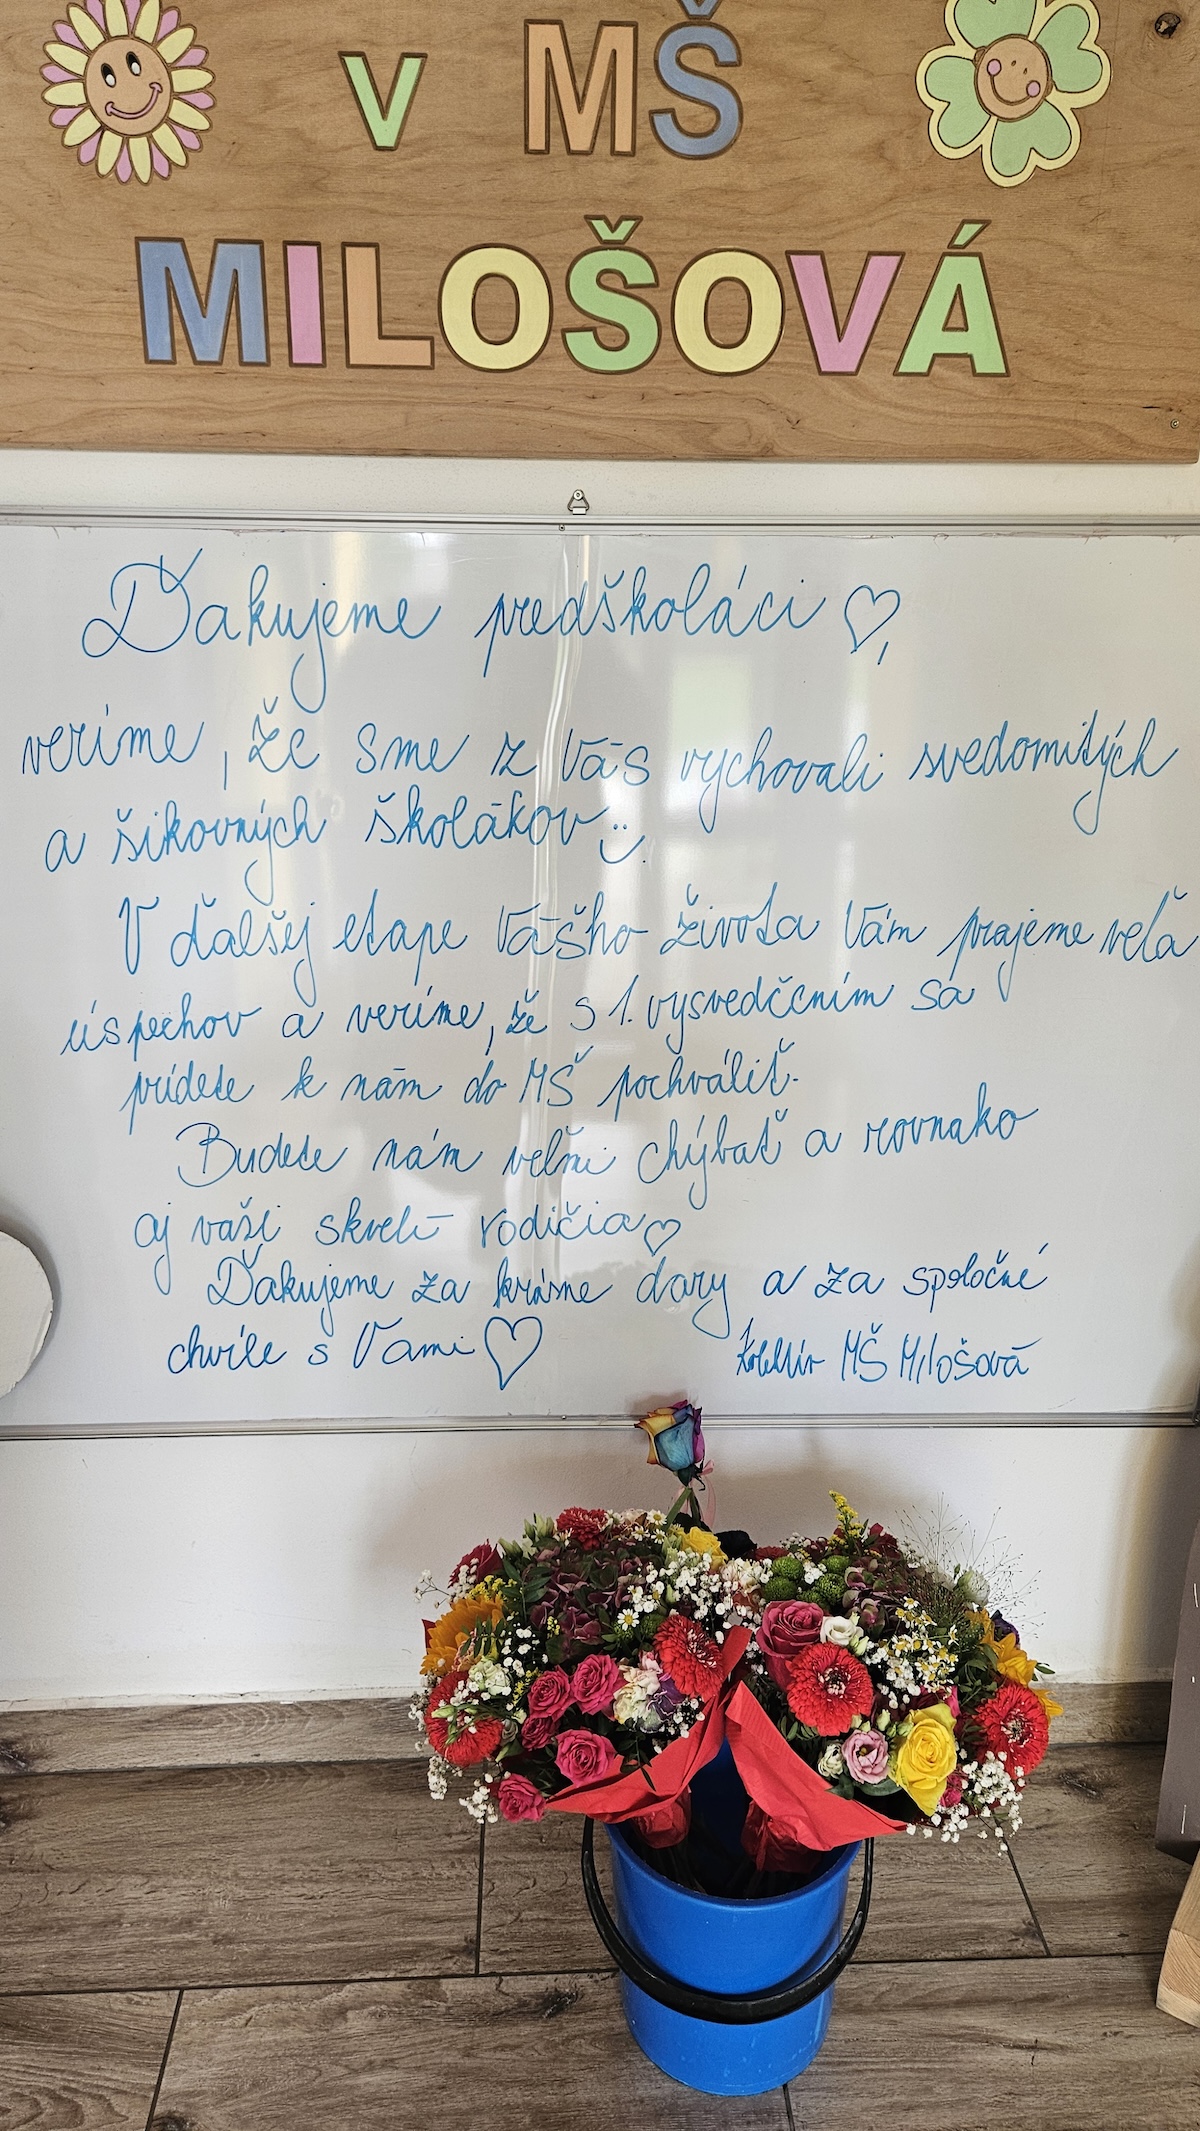 V MŠ
MILOŠOVÁ
Ďakujeme predškoláci ♡,
veríme, že sme z Vás vychovali svedomitých
a šikovných školákov :)
V ďalšej etape Vášho života Vám prajeme veľa
úspechov a veríme, že s 1. vysvedčením sa
prídete k nám do MŠ pochváliť.
Budete nám veľmi chýbať a rovnako
aj vaši skvelí rodičia ♡
Ďakujeme za krásne dary a za spoločné
chvíle s Vami ♡
Kolektív MŠ Milošová